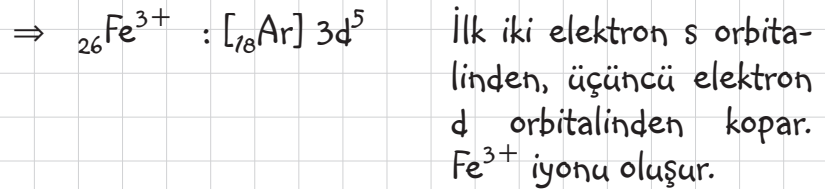 ⇒ ₂₆Fe³⁺ : [₁₈Ar] 3d⁵
İlk iki elektron s orbita-
linden, üçüncü elektron
d orbitalinden kopar.
Fe³⁺ iyonu oluşur.